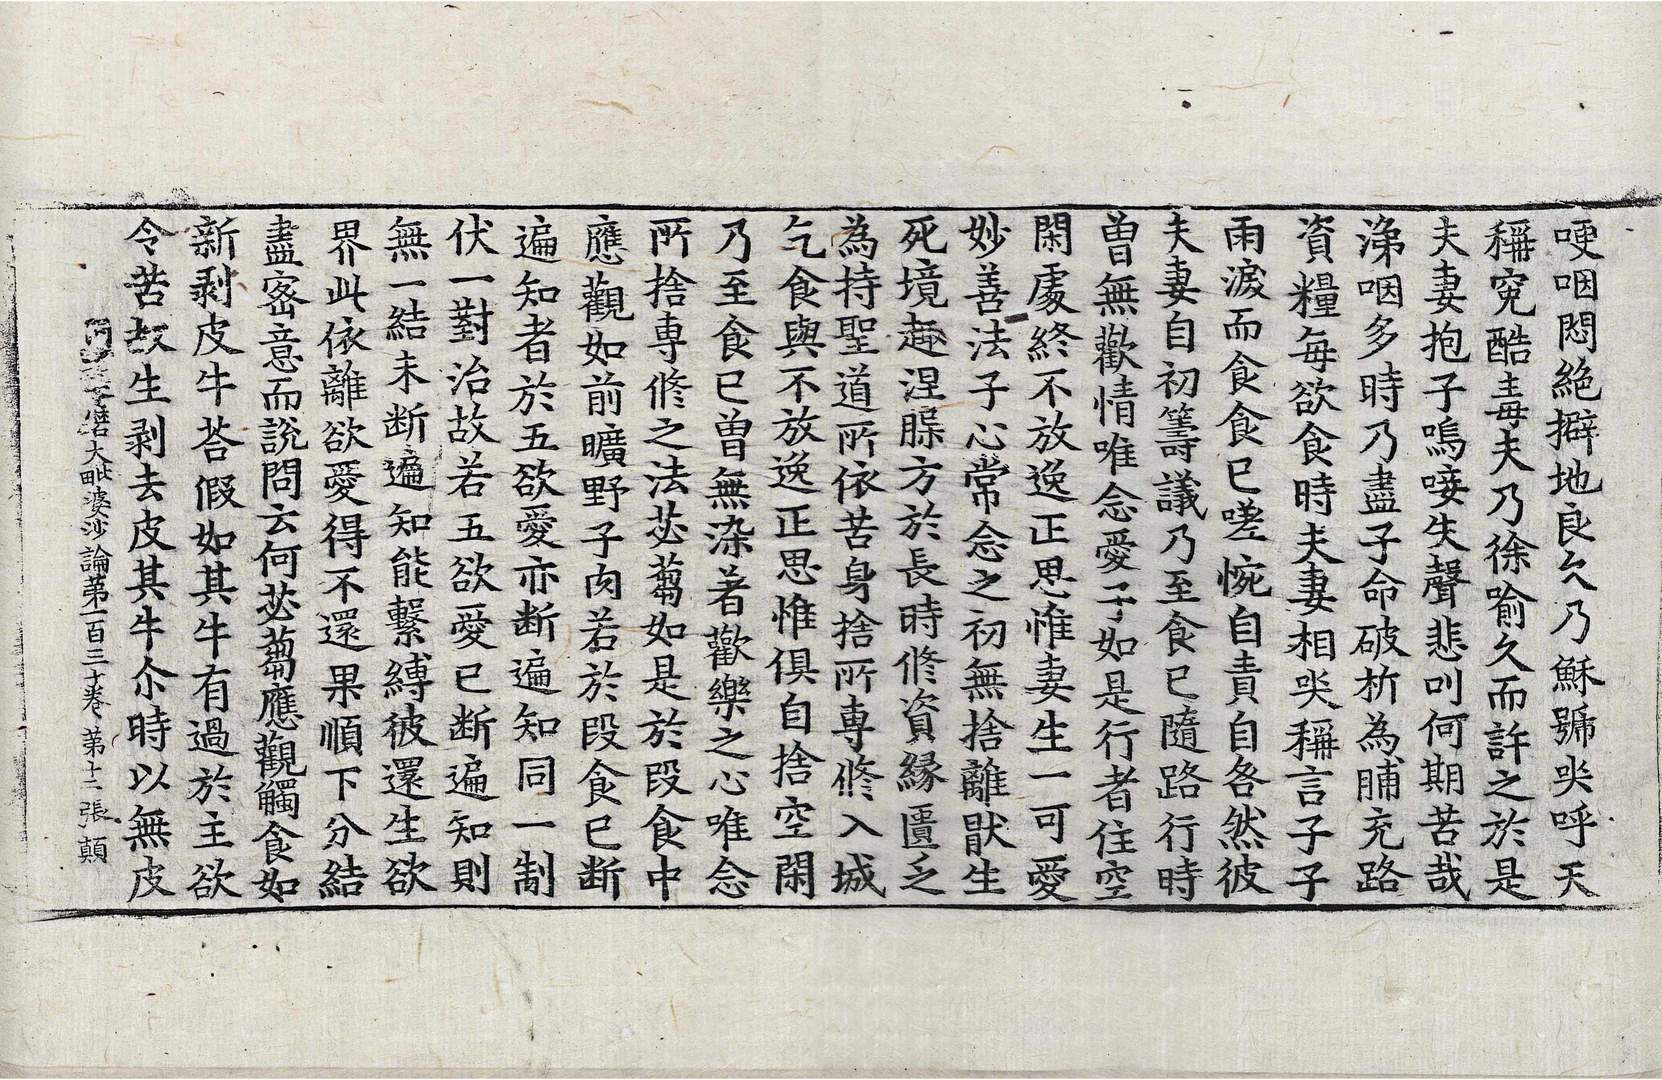 哽咽悶絶擗地良久乃穌號哭呼天
稱寃酷毒夫乃徐喻久而許之於是
夫妻抱子嗚唼失聲悲叫何期苦哉
涕咽多時乃盡子命破析為脯充路
資糧每欲食時夫妻相哭稱言子子
雨淚而食食已嗟惋自責自咎然彼
夫妻自初籌議乃至食已隨路行時
曾無歡情唯念愛子如是行者住空
閑處終不放逸正思惟妻生一可愛
妙善法子心常念之初無捨離猒生
死境趣涅槃方於長時修資緣匱乏
為持聖道所依苦身捨所専修入城
乞食與不放逸正思惟俱自捨空閑
乃至食已曾無染著歡樂之心唯念
所捨専修之法苾蒭如是於段食中
應觀如前曠野子肉若於段食已断
遍知者於五欲愛亦断遍知同一制
伏一對治故若五欲愛已断遍知則
無一結未断遍知能繫縛彼還生欲
界此依離欲愛得不還果順下分結
盡密意而說問云何苾蒭應觀觸食如
新剥皮牛荅假如其牛有過於主欲
令苦故生剥去皮其牛尒時以無皮
阿毗達磨大毗婆沙論第一百三十卷 第十二張 顛